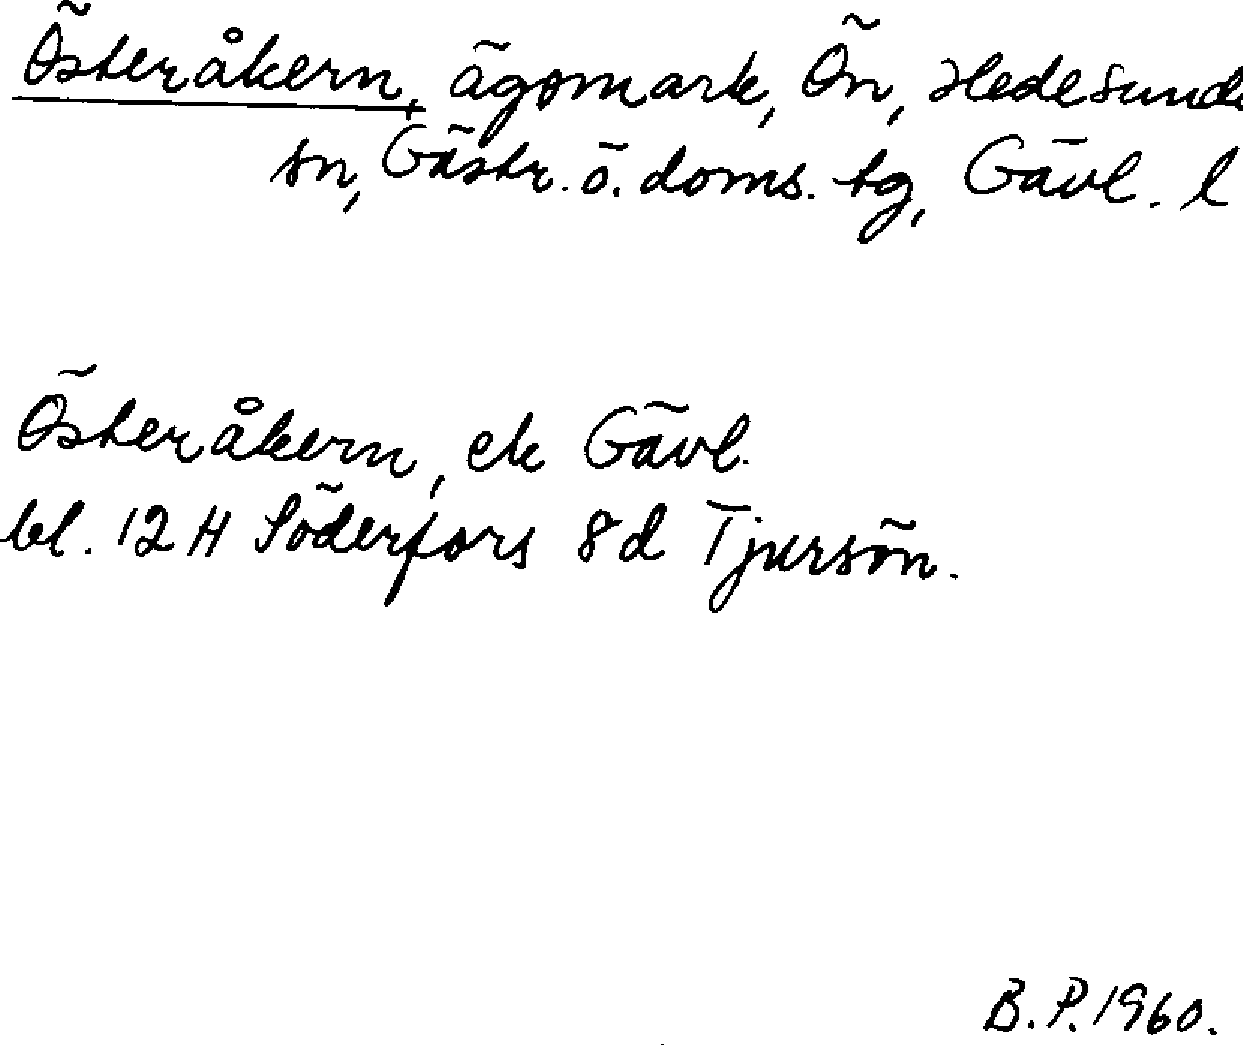 Österåkern, ägomark, Ön, Hedesunda
sn, Gästr. ö. doms. tg, Gävl. l
Österåkern, ek Gävl.
bl. 12 H Söderfors 8d Tjursön.
B. P. 1960.